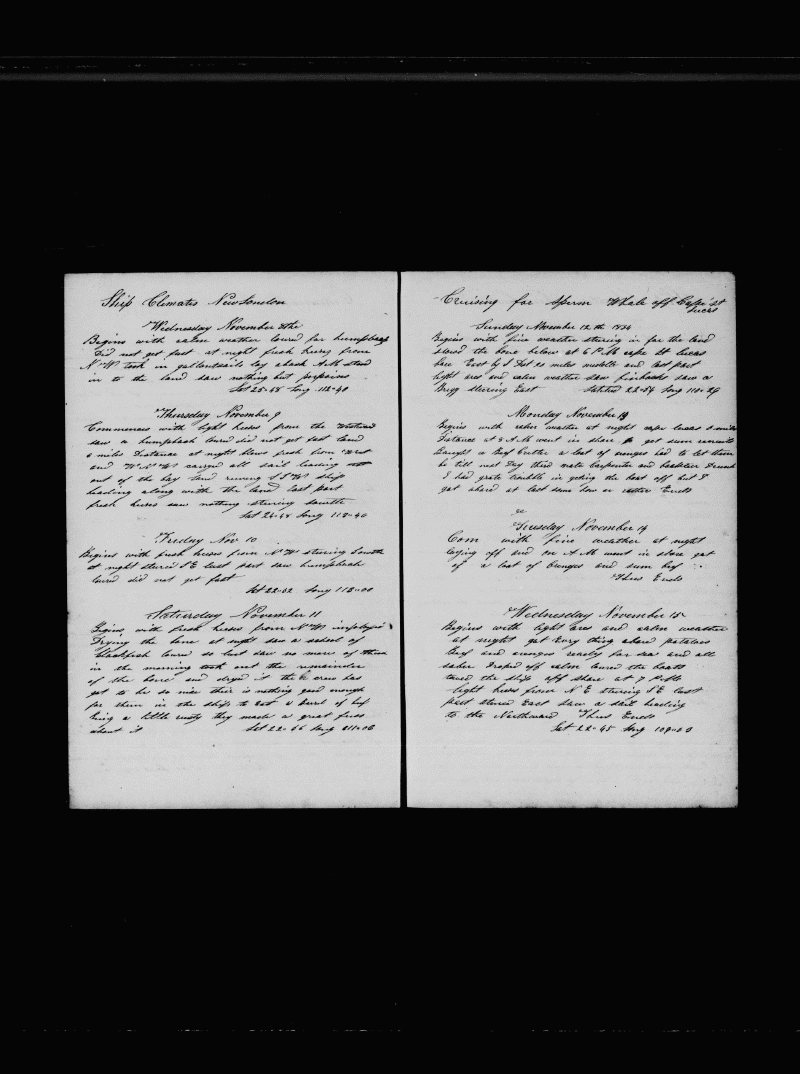 Ship Climates New London
Wednesday November 8the
Begins with calm weather lowrd for humpbacks
Did not get fast at night fresh breeses from
N W took in gallantsails lay aback A.M stood
in to the land saw nothing but porpoises
Lat 25-58 Long 112-40
Thursday November 9
Commences with light breeses from the Westward
saw a humpback lowrd did not get fast land
6 miles Distance at night blows fresh from West
and W N W carried all sail leading
out of the bay land S S W ship
heading along with the land last part
fresh breses saw nothing steering south
Lat 24-48 Long 112-40
Friday Nov 10
Begins with fresh breses from N W steering South
at night steerd S E last part saw humpback
lowrd did not get fast
Lat 22-52 Long 112-00
Saturday November 11
Begins with fresh breses from N W imployed
Drying the bone at night saw a school of
blackfish lowrd so but saw no more of them
in the morning took out the remainder
of the bone and dryed it the crew has
got to be so nice their is nothing good enough
for them in the ship to eat a barrel of bif
bing a little rusty they made a great fuss
about it Lat 22-56 Long 111-06
Cruising for Sperm Whale off Cape St
Lucas
Sunday November 12 th 1854
Begins with fine weather steering in for the land
stowed the bone below at 6 P M cape St Lucas
bore East by S Dist 20 miles middle and last part
light ares and calm weather saw finbacks saw a
Brigg steering East Latitud 22-54 Long 110-29
Monday November 13
Begins with calm weather at night cape lucas 6 miles
Distance at 8 A M went in shore to get sum recruits
Baught a Beef Cutter a boat of oranges had to let them
be till next Day third mate carpenter and boatsteer Drunk
I had grate trouble in geting the boat off but I
got abord at last some how or nother Ends
Tuesday November 14
Com with fine weather at night
laying off and on A M went in shore got
of a boat of oranges and sum bef
Thus Ends
Wednesday November 15
Begins with light ares and calm weather
at night got Evry thing abord potatoes
Beef and oranges ready for sea and all
sober Droped off calm lowrd the boats
towed the ship off shore at 7 P.M
light breses from N E steering S E last
part steerd East saw a sail heading
to the Northward Thus Ends
Lat 22-45 Long 109-00